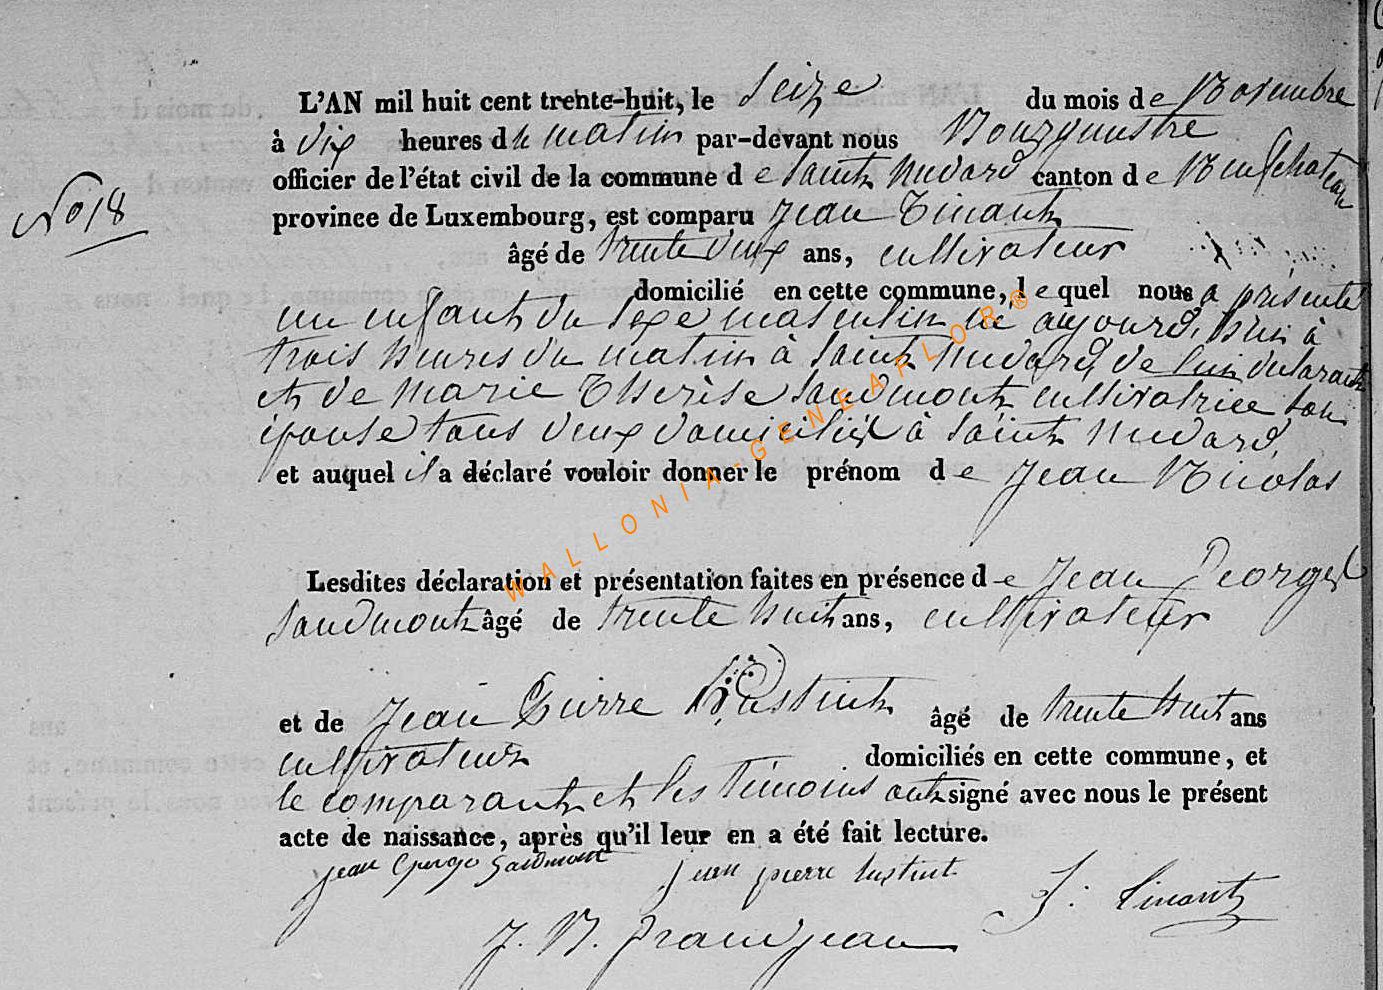 L'AN mil huit cent trente-huit, le Seize du mois de Novembre
à dix heures du matin par-devant nous Bourgmestre
officier de l'état civil de la commune de Saint Medard canton de Neufchateau
N° 18
province de Luxembourg, est comparu Jean Tinant
âgé de trente deux ans, cultivateur
domicilié en cette commune, lequel nous a présenté
un enfant du sexe masculin né aujourd'hui à
trois heures du matin à Saint Medard, de lui déclarant
et de Marie Therèse Saudmont cultivatrice son
épouse tous deux domiciliés à Saint Medard,
et auquel il a déclaré vouloir donner le prénom de Jean Nicolas
Lesdites déclaration et présentation faites en présence de Jean Georges
Saudmont âgé de trente huit ans, cultivateur
et de Jean Pierre âgé de trente huit ans
cultivateur domiciliés en cette commune, et
le comparant et les témoins ont signé avec nous le présent
acte de naissance, après qu'il leur en a été fait lecture.
jean George Saudmont jean pierre J: Tinant
J. N. Grandjean
WALLONIA-GENEAFLOR®